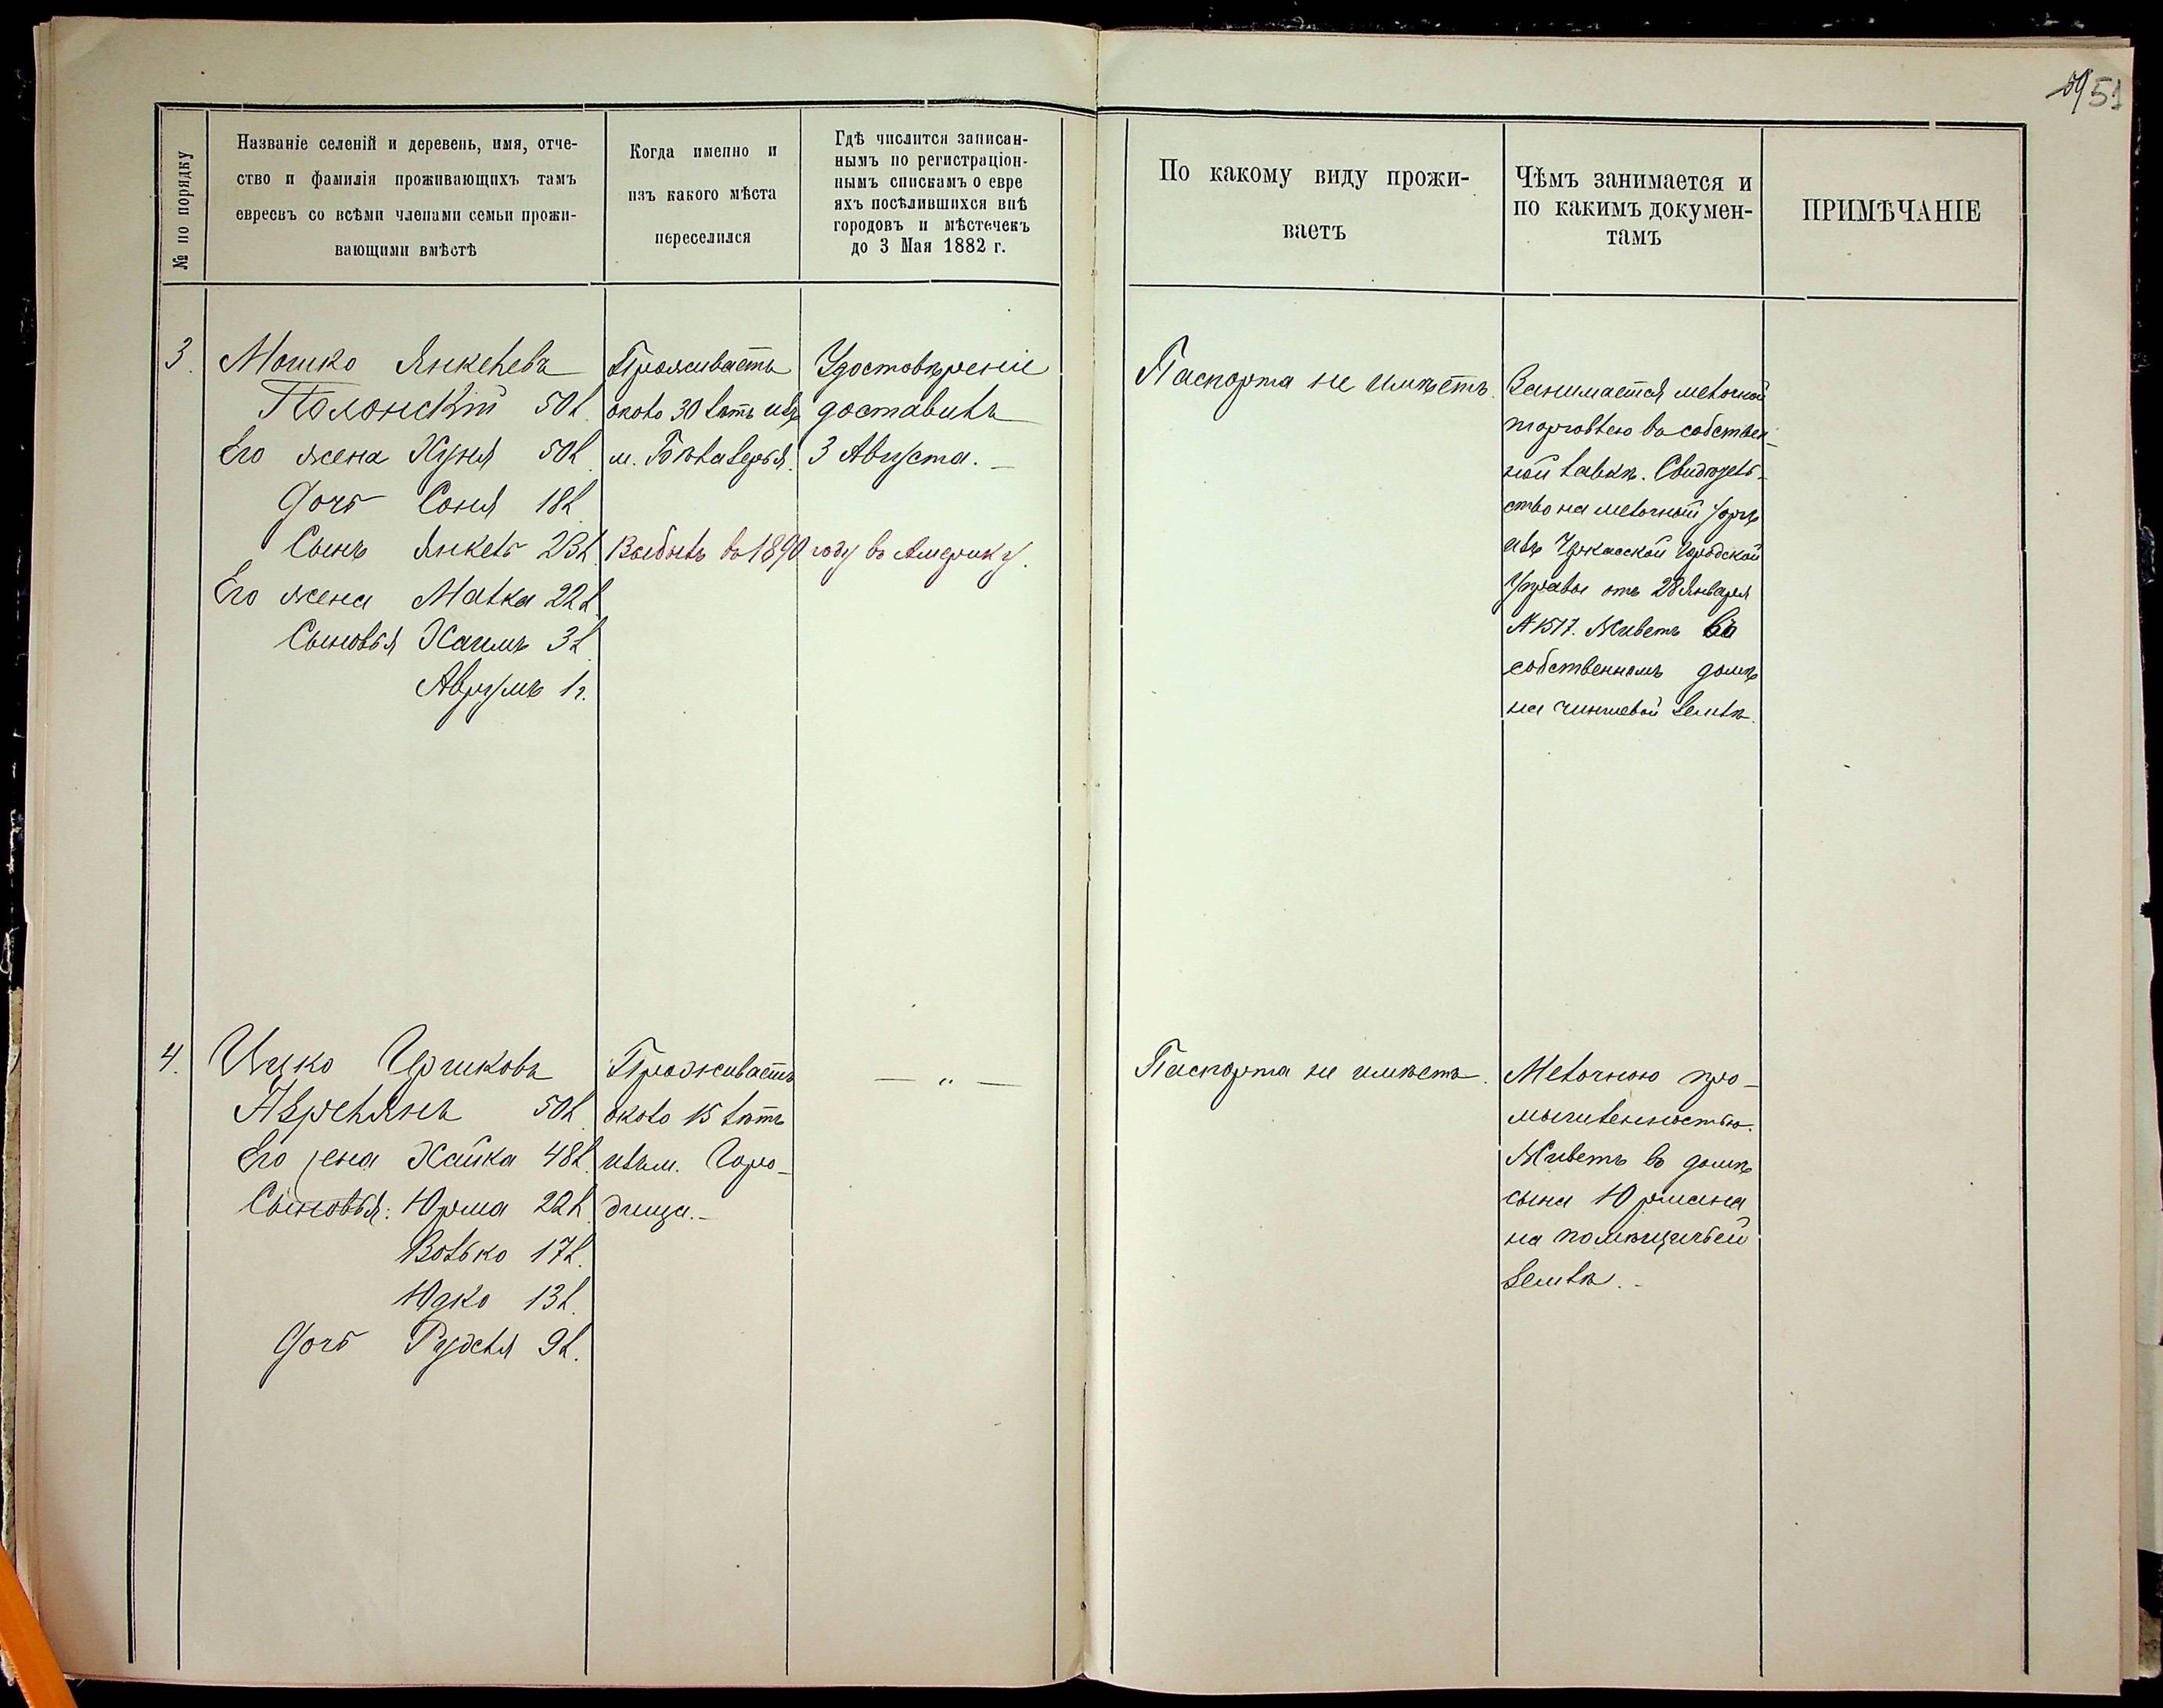 51
№ по порядку
Названіе селеній и деревень, имя, отче-
ство и фамилія проживающихъ тамъ
евреевъ со всѣми членами семьи прожи-
вающими вмѣстѣ
Когда именно и
изъ какого мѣста
переселился
Гдѣ числится записан-
нымъ по регистраціон-
нымъ спискамъ о евре
яхъ посѣлившихся внѣ
городовъ и мѣстечекъ
до 3 Мая 1882 г.
По какому виду прожи-
ваетъ
Чѣмъ занимается и
по какимъ докумен-
тамъ
ПРИМѢЧАНІЕ
3.
Мошко Янкелевъ
Полонскій 50 л.
Его жена Хуня 50 л.
Дочь Соня 18 л.
Сынъ Янкель 23 л.
Его жена Малка 22 л.
Сыновья Хаимъ 3 л.
Аврумъ 1 г.
Проживаетъ
около 30 лѣтъ изъ
м. Бѣлазерья.
Выбылъ въ 1890 году въ Америку.
Удостовѣреніе
доставилъ
3 Августа. —
Паспорта не имѣетъ.
Занимается мелочной
торговлею въ собствен-
ной лавкѣ. Свидѣтель-
ство на мелочный торгъ
изъ Черкасской Городской
Управы отъ 28 Января
№ 1517. Живетъ въ
собственномъ домѣ
на чиншевой землѣ.
4.
Ицко Ершковъ
50 л.
Его жена Хайка 48 л.
Сыновья: Юрма 22 л.
Волько 17 л.
Юдко 13 л.
Дочь Рудля 9 л.
Проживаетъ
около 15 лѣтъ
изъ м. Горо-
дища. —
— „ —
Паспорта не имѣетъ.
Мелочною про-
мышленностью.
Живетъ въ домѣ
сына Юрмана
на помѣщичьей
землѣ. —